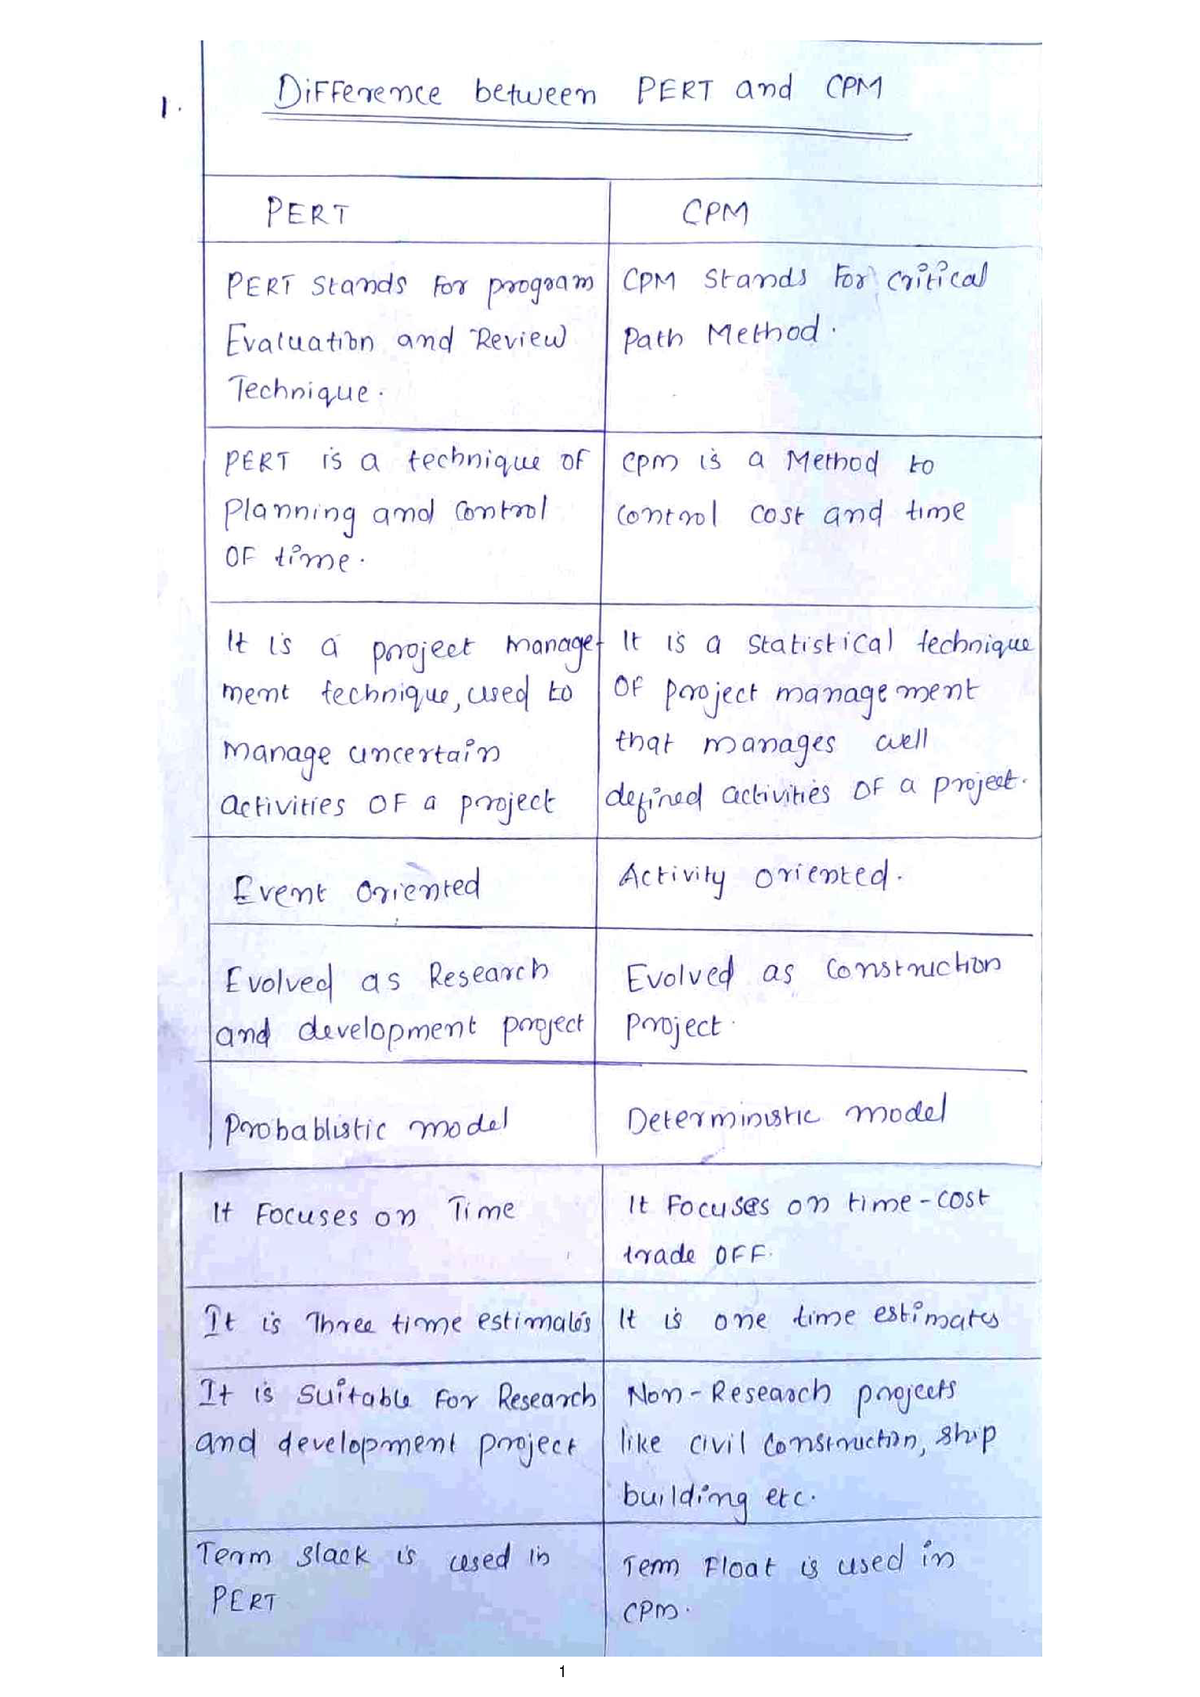 1. Difference between PERT and CPM
PERT
CPM
PERT Stands For program
Evaluation and Review
Technique.
CPM Stands For Critical
Path Method.
PERT is a technique OF
Planning and Control
OF time.
CPM is a Method to
Control cost and time
It is a project manage-
ment technique, used to
manage uncertain
activities OF a project
It is a Statistical technique
OF project management
that manages well
defined activities OF a project.
Event Oriented
Activity oriented.
Evolved as Research
and development project
Evolved as Construction
Project.
Probablistic model
Deterministic model
It Focuses on Time
It Focuses on time-cost
trade OFF.
It is Three time estimates
It is one time estimates
It is Suitable For Research
and development project
Non-Research projects
like civil Construction, ship
building etc.
Term slack is used in
PERT
Term Float is used in
CPM.
1